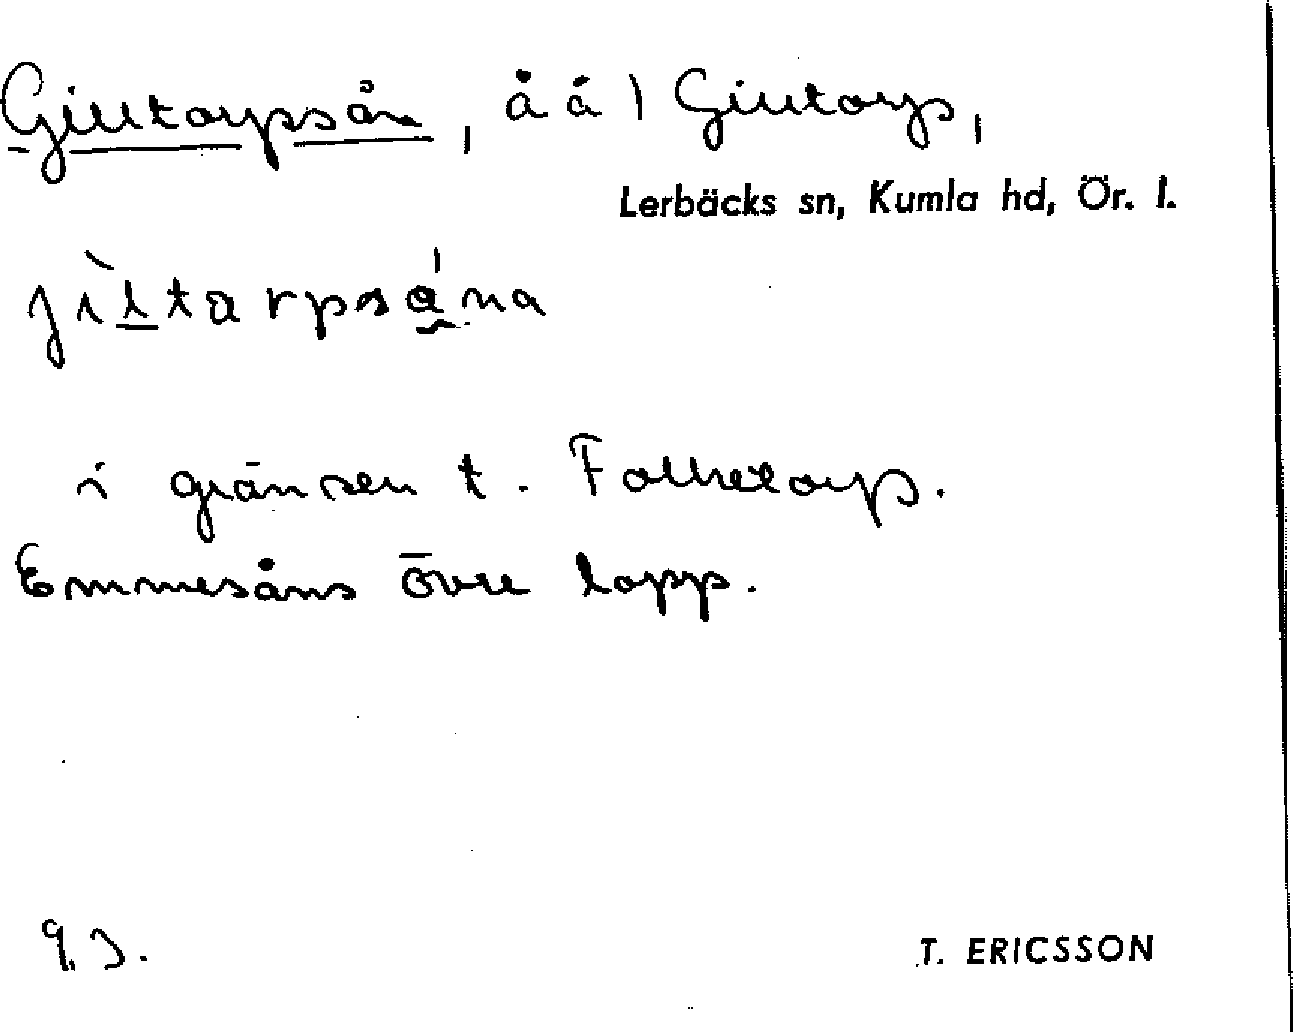 Gilltorpsån, å å l Gilltorp,
Lerbäcks sn, Kumla hd, Ör. l.
jìltarpsána
i gränsen t. Folketorp.
Emmesåns övre lopp.
T. ERICSSON